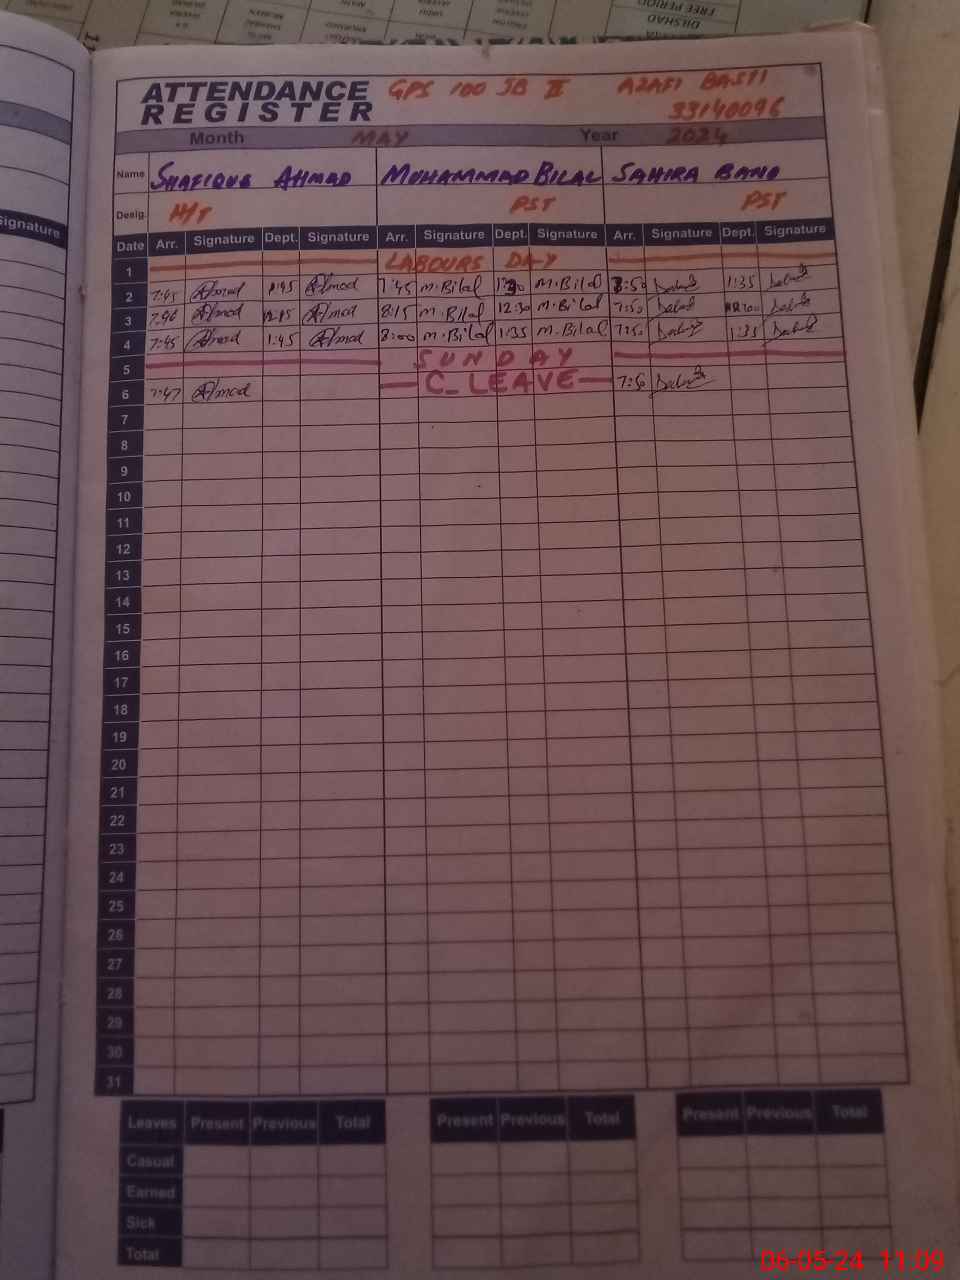 DILSHAD
FREE PERIOD
ATTENDANCE GPS 100 JB II AZAFI BASTI
REGISTER 33140096
Month MAY Year 2024
Name SHAFIQUE AHMAD MUHAMMAD BILAL SAHIRA BANO
Desig. H/T PST PST
Signature
Date Arr. Signature Dept. Signature Arr. Signature Dept. Signature Arr. Signature Dept. Signature
1 LABOURS DAY
2 7:45 Ahmad 1:45 Ahmad 7:45 M.Bilal M.Bilal 1:35
3 7:46 Ahmad 12:15 Ahmad 8:15 M.Bilal 12:30 M.Bilal 7:50
4 7:45 Ahmad 1:45 Ahmad 8:00 M.Bilal 1:35 M.Bilal 7:50 1:35
5 SUNDAY
6 7:47 Ahmad C_LEAVE
7
8
9
10
11
12
13
14
15
16
17
18
19
20
21
22
23
24
25
26
27
28
29
30
31
Leaves Present Previous Total Present Previous Total Present Previous Total
Casual
Earned
Sick
Total
06-05-24 11:09